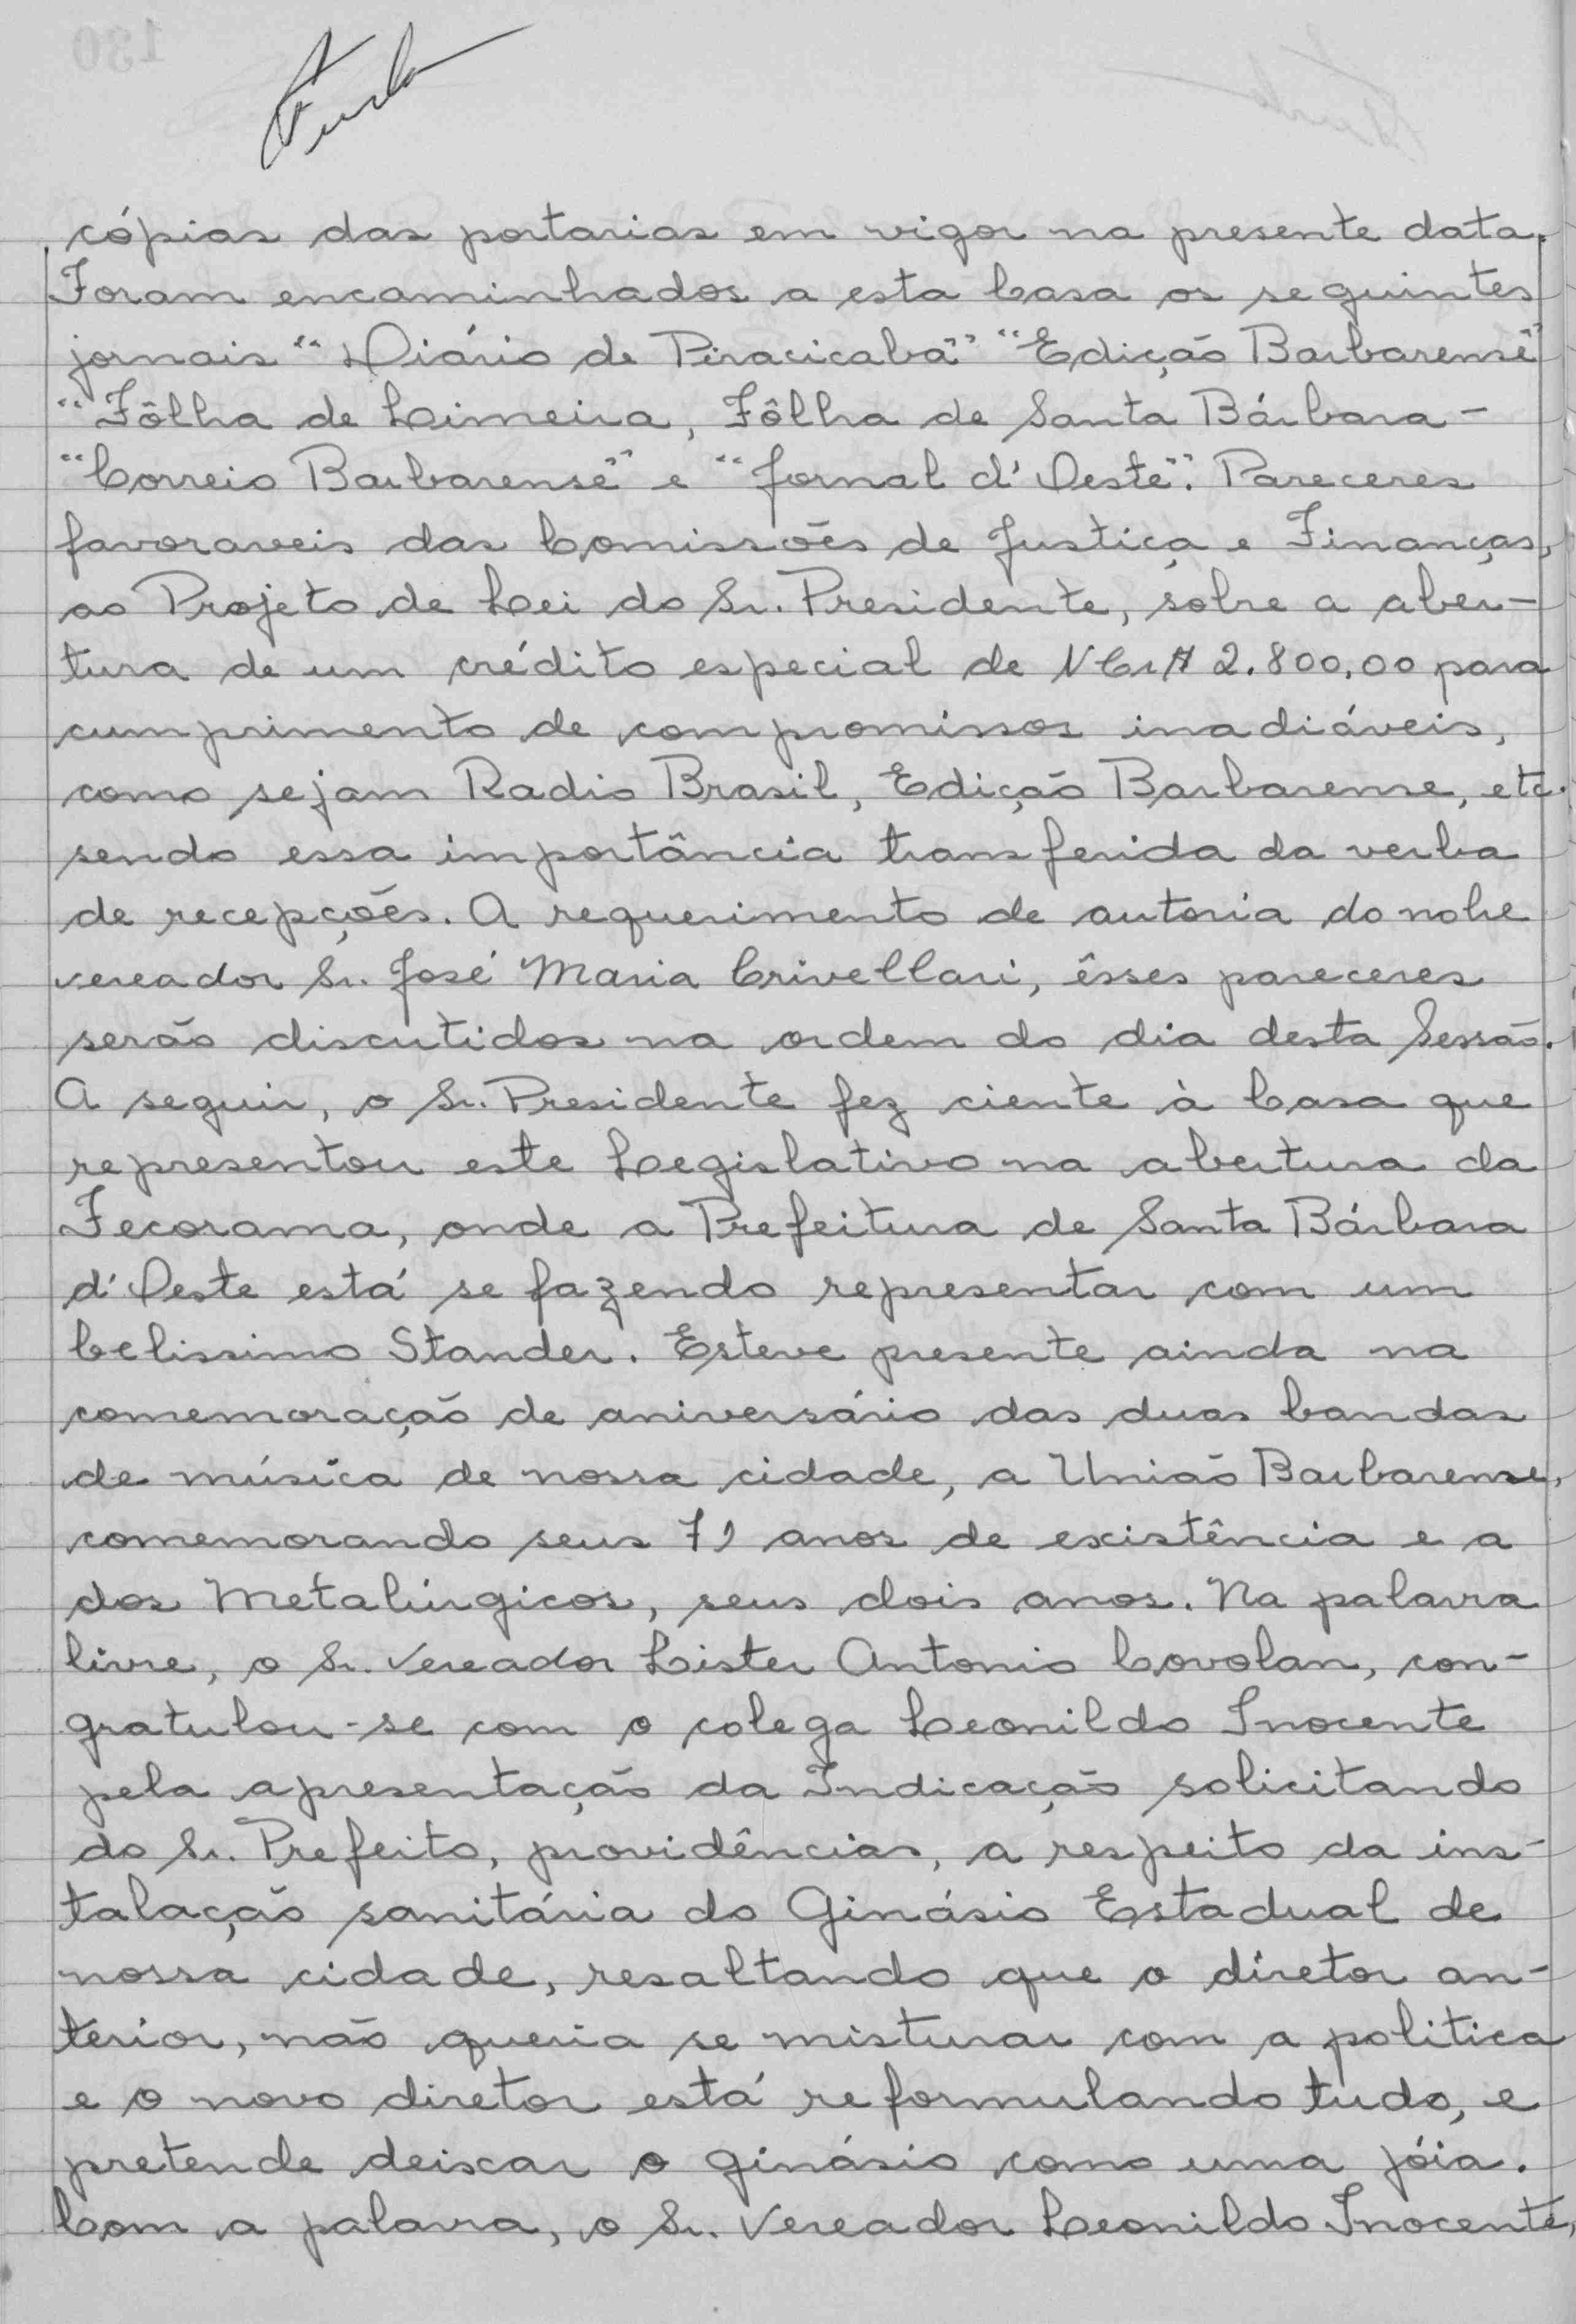 cópias das portarias em vigor na presente data.
Foram encaminhados a esta Casa os seguintes
jornais "Diário de Piracicaba" "Edição Barbarense"
"Fôlha de Limeira, Fôlha de Santa Bárbara -
"Correio Barbarense" e "Jornal d'Oeste". Pareceres
favoraveis das Comissões de Justiça e Finanças,
ao Projeto de Lei do Sr. Presidente, sôbre a aber-
tura de um crédito especial de NCr$ 2.800,00 para
cumprimento de compromissos inadiáveis,
como sejam Radio Brasil, Edição Barbarense, etc.
sendo essa importância transferida da verba
de recepções. A requerimento de autoria do nobre
vereador Sr. José Maria Crivellari, êsses pareceres
serão discutidos na ordem do dia desta Sessão.
A seguir, o Sr. Presidente fez ciente à Casa que
representou este Legislativo na abertura da
Fecorama, onde a Prefeitura de Santa Bárbara
d'Oeste está se fazendo representar com um
belissimo Stander. Esteve presente ainda na
comemoração de aniversário das duas bandas
de música de nossa cidade, a União Barbarense,
comemorando seus 71 anos de existência e a
dos Metalúrgicos, seus dois anos. Na palavra
livre, o Sr. Vereador Lister Antonio Covolan, con-
gratulou-se com o colega Leonildo Inocente
pela apresentação da Indicação solicitando
do Sr. Prefeito, providências, a respeito da ins-
talação sanitária do Ginásio Estadual de
nossa cidade, resaltando que o diretor an-
terior, não queria se misturar com a politica
e o novo diretor está reformulando tudo, e
pretende deixar o ginásio como uma jóia.
Com a palavra, o Sr. Vereador Leonildo Inocente,